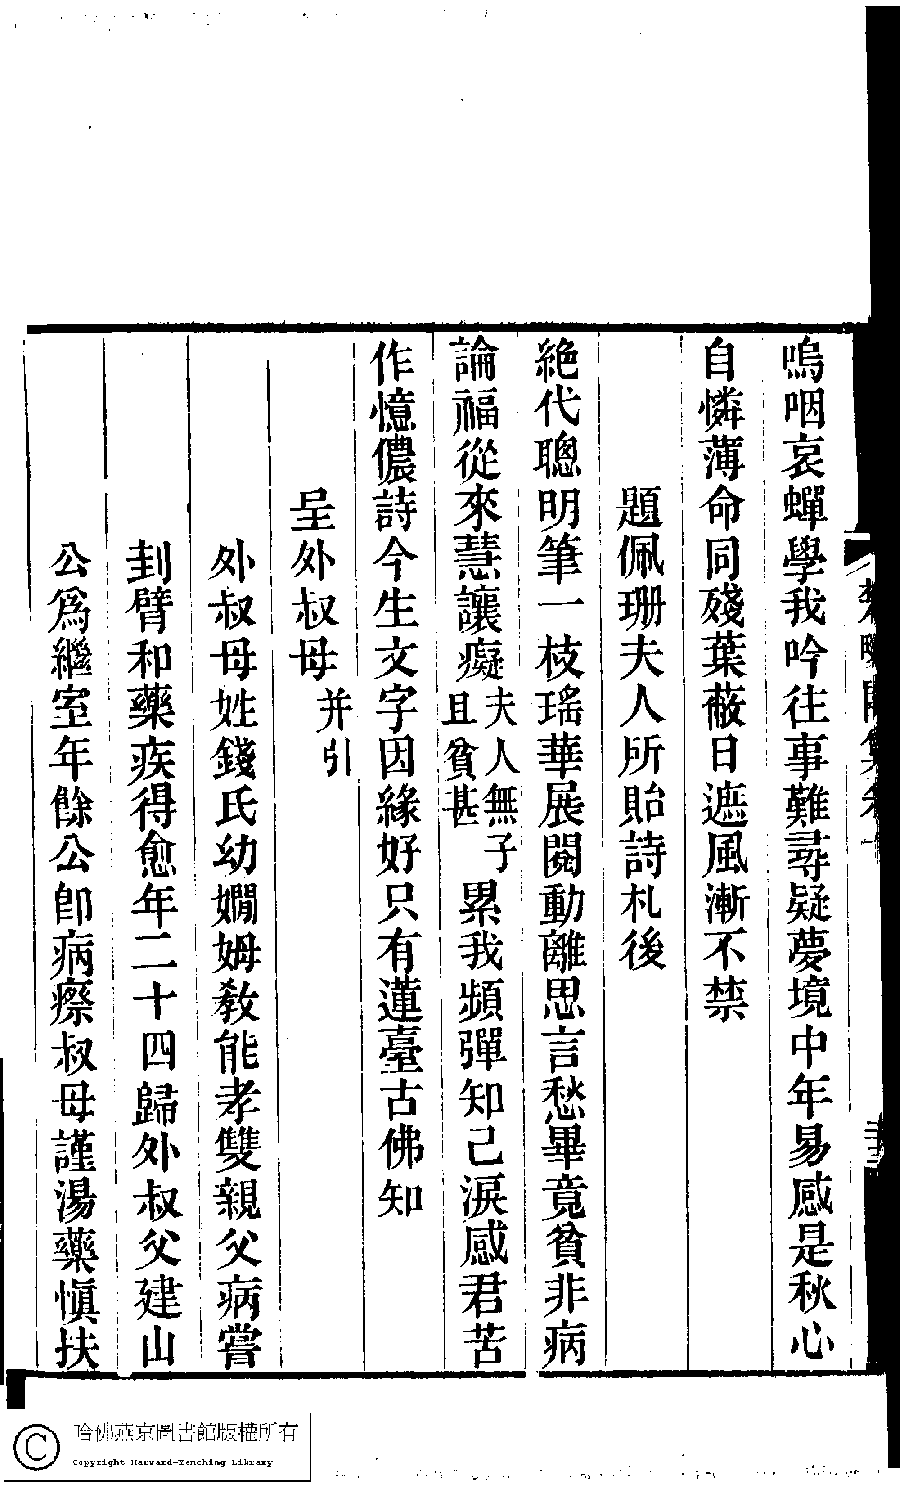 嗚咽哀蟬學我吟往事難尋疑夢境中年易感是秋心
自憐薄命同殘葉蔽日遮風漸不禁
題佩珊夫人所貽詩札後
絕代聰明筆一枝瑤華展閱動離思言愁畢竟貧非病
論福從來慧讓癡夫人無子且貧甚累我頻彈知己淚感君苦
作憶儂詩今生文字因緣好只有蓮臺古佛知
呈外叔母并引
外叔母姓錢氏幼嫺姆教能孝雙親父病嘗
刲臂和藥疾得愈年二十四歸外叔父建山
公爲繼室年餘公卽病瘵叔母謹湯藥愼扶
哈佛燕京圖書館版權所有
Copyright Harvard-Yenching Library